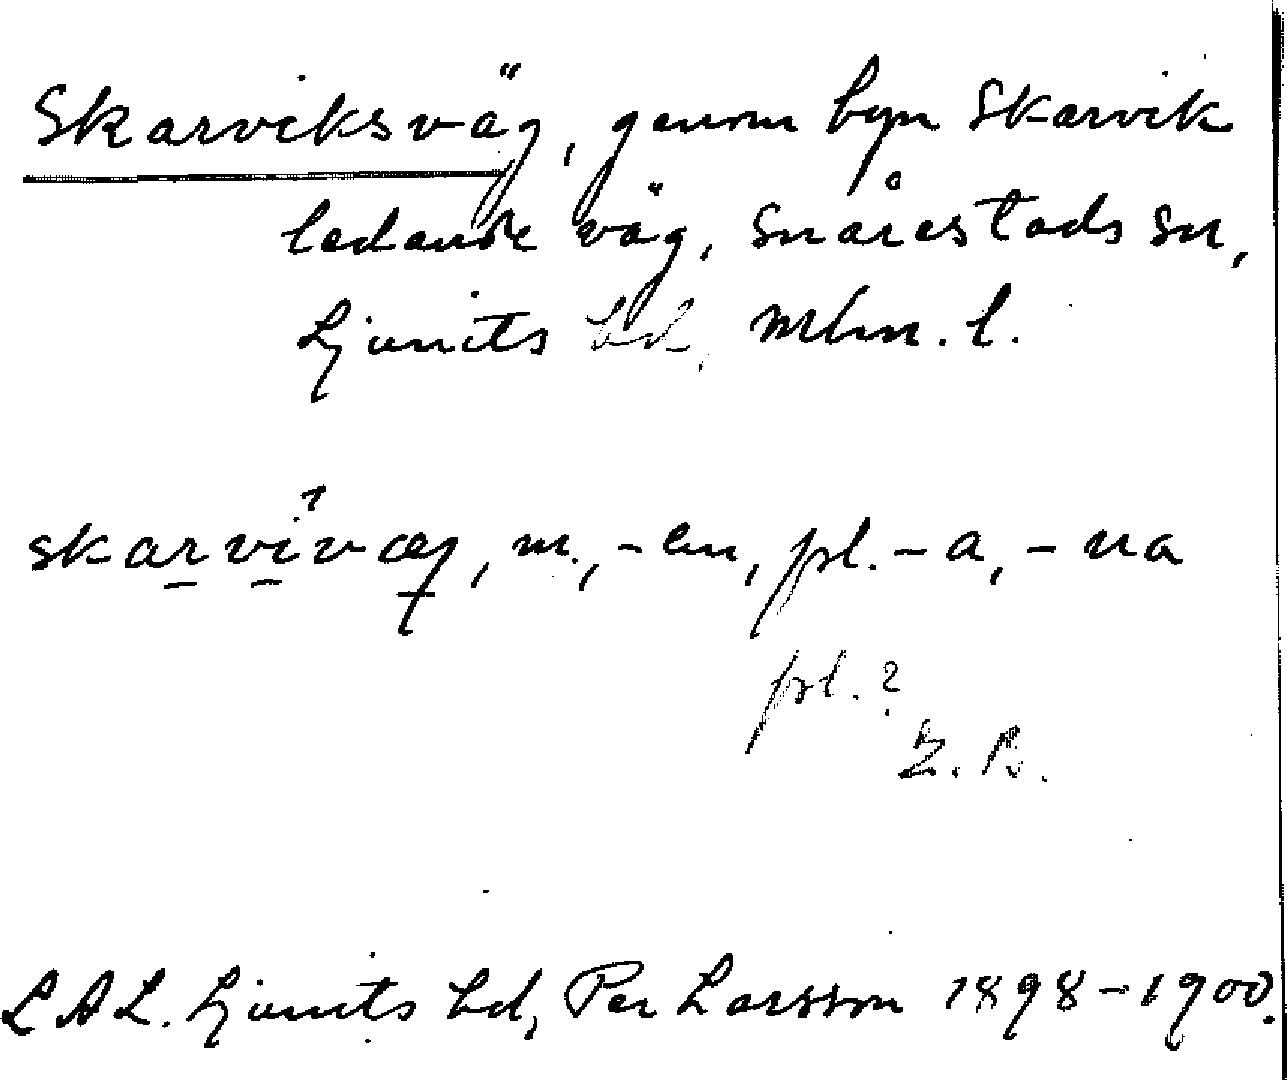 Skarviksväg, genom byn Skarvik
ledande väg, Snårestads sn,
Ljunits hd, Mlm. l.
skarvivæg, m., -en, pl. -a, -na
pl. ?
L A L. Ljunits hd, Per Larsson 1898-1900.